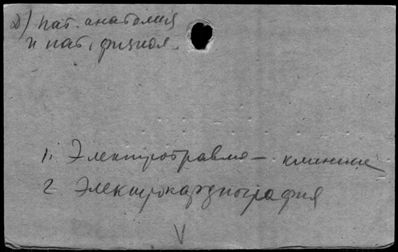 2) пат. анатомия
и пат. физиол.
1. Электротравма – клиника
2. Электрокардиография
V